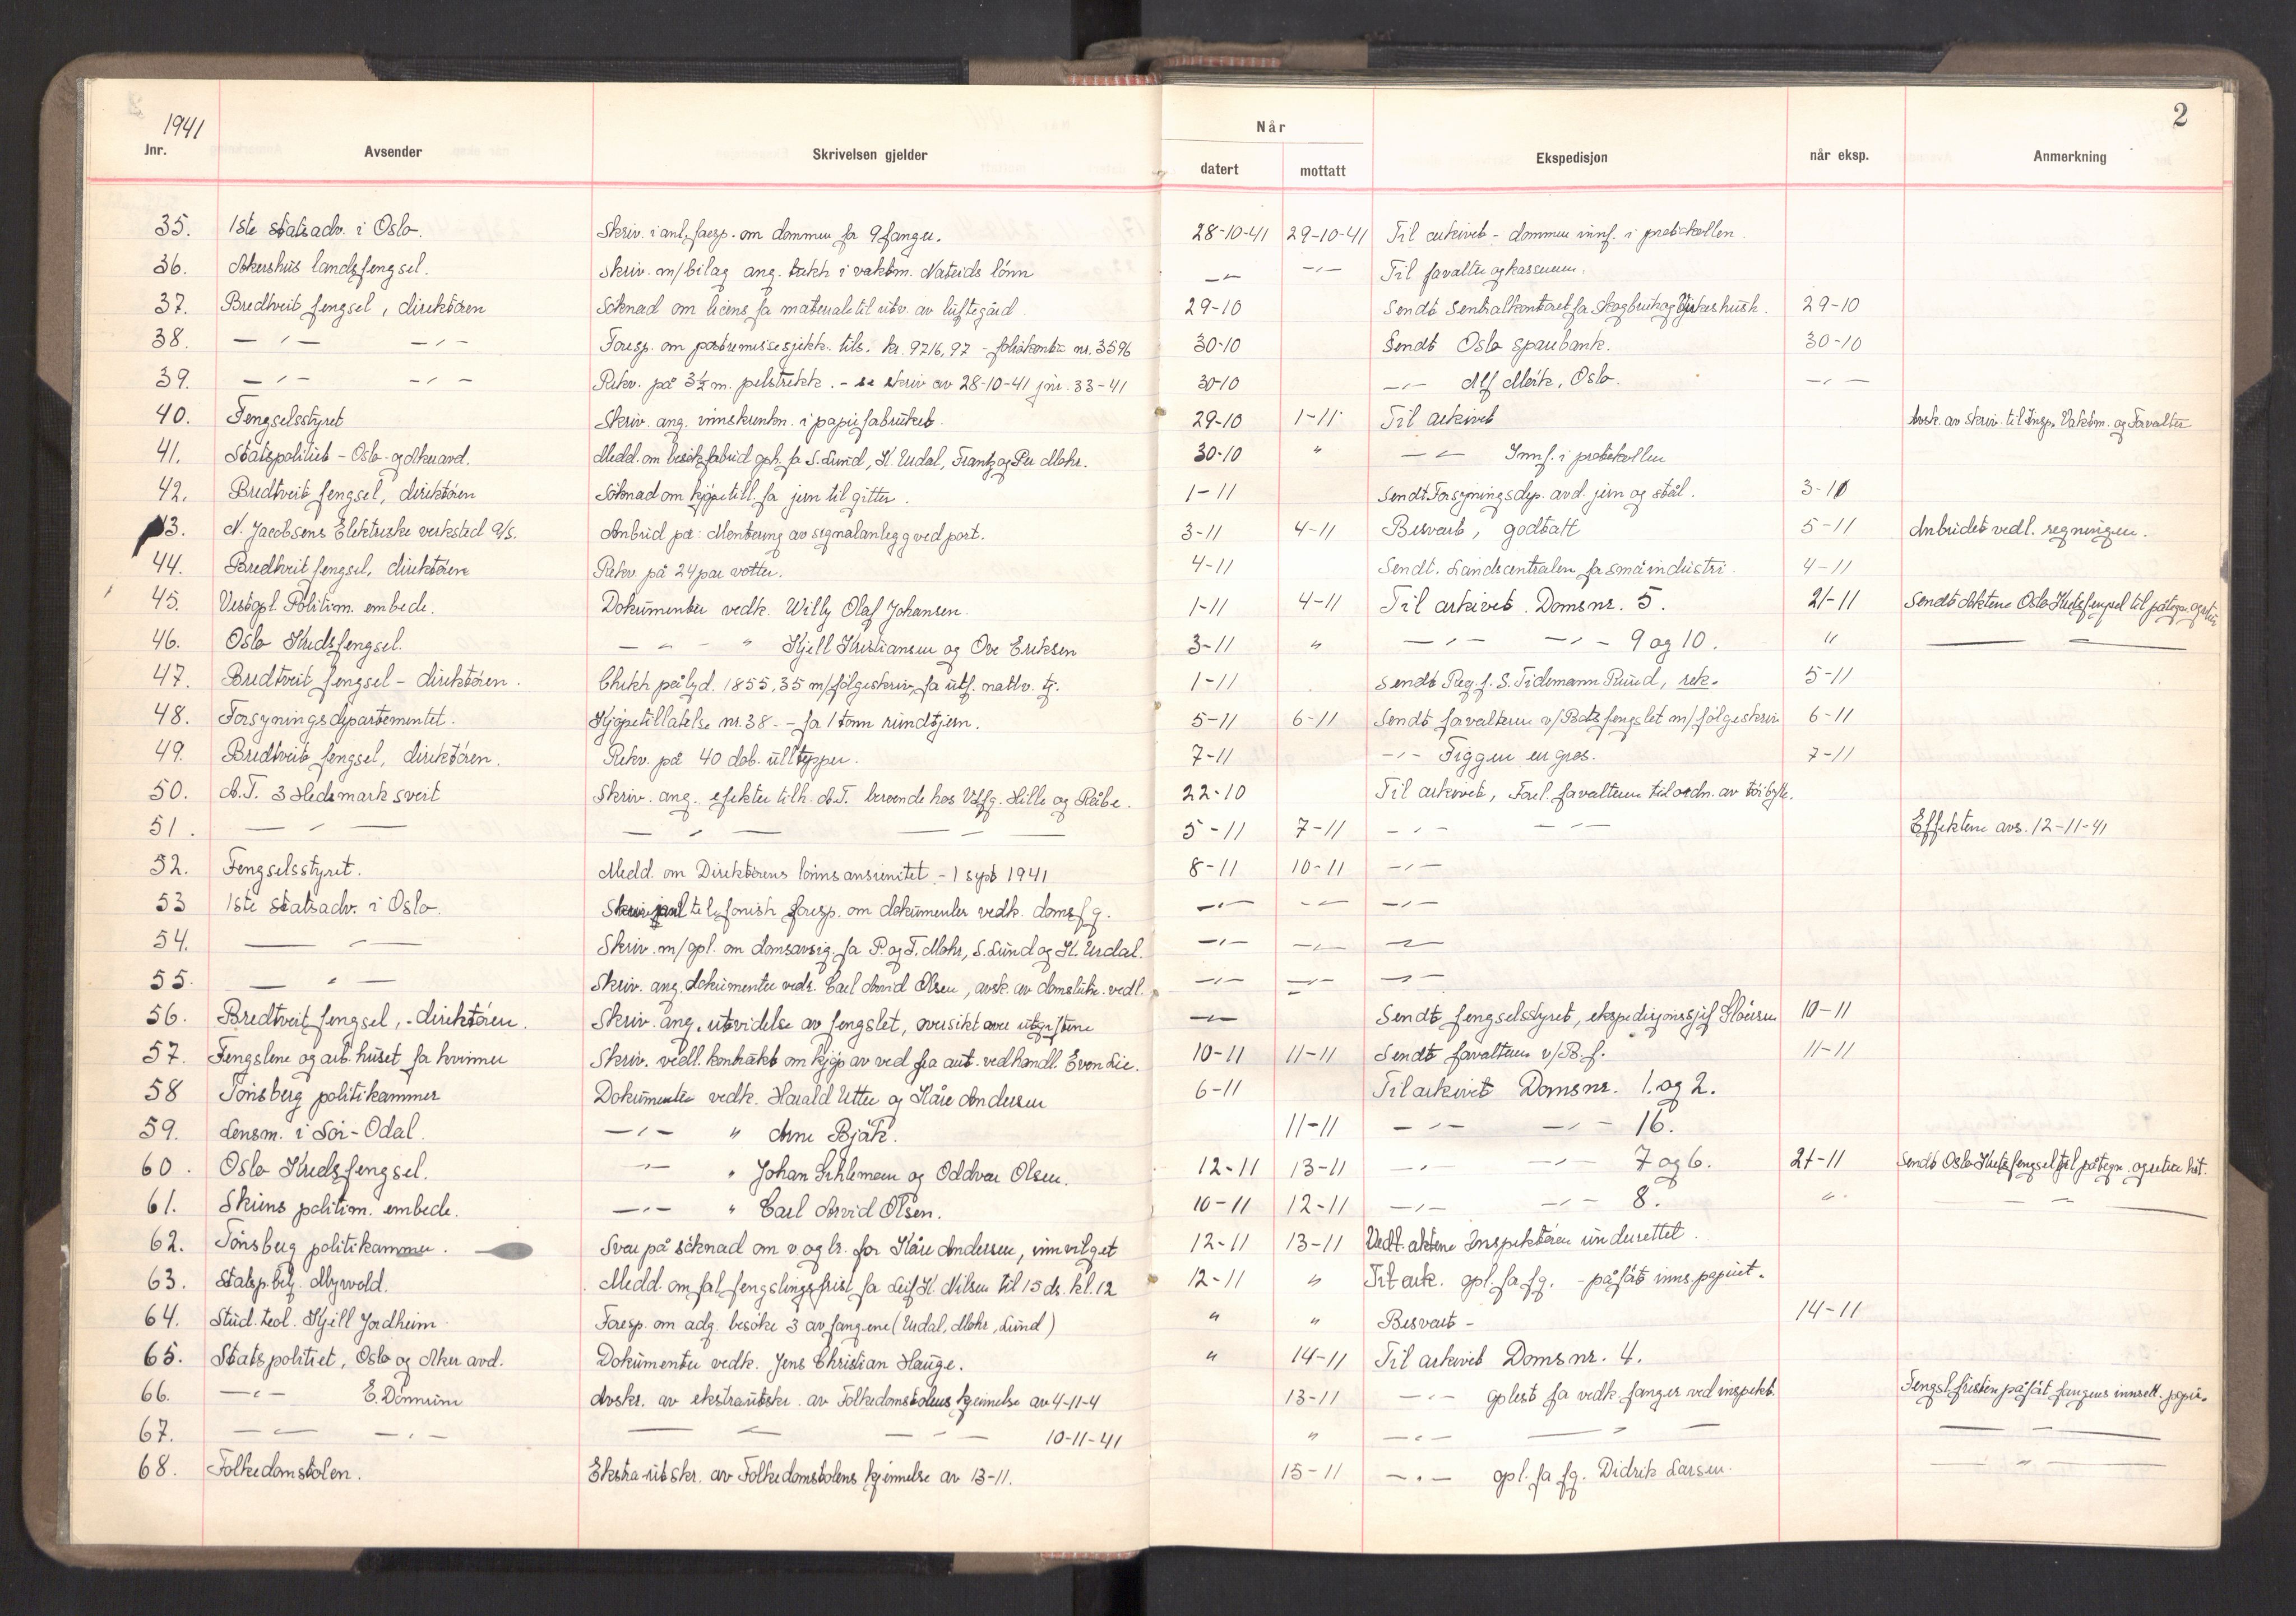 1941
2
Når
Jnr. Avsender Skrivelsen gjelder datert mottatt Ekspedisjon når eksp. Anmerkning
35. 1ste statsadv. i Oslo. Skriv. i anl. foresp. om dommen for 9 fanger. 28-10-41 29-10-41 Til arkivet - dommen innf. i protokollen.
36. Akershus landsfengsel. Skriv. m/bilag ang. trekk i vaktm. lønn — — -,- Til forvalter og kasserer.
37. Bredtveit fengsel, direktören Söknad om licens for materiale til utv. av luftegård. 29-10 Sendt Sentralkontoret for Skogbruk og 29-10
38. — ' — — ' — Foresp. om postremissesjekk. tils. kr. 9716,97 - foliokonto nr. 3596 30-10 Sendt Oslo sparebank. 30-10
39. — ' — — ' — Rekv. på 3½ m. pelstrekk. - se skriv av 28-10-41 jnr. 33-41 30-10 -,- Alf Mørk, Oslo. -,-
40. Fengselsstyret Skriv. ang. innskrenkn. i papirforbruket. 29-10 1-11 Til arkivet Avsk. av skriv. til Insp. Vaktm. og Forvalter
41. Statspolitiet - Oslo- og Aker avd. Medd. om besøksforbud oph. for S. Lund, K. Urdal, Frantz og Per Mohr. 30-10 " — — Innf. i protokollen
42. Bredtveit fengsel, direktören Söknad om kjöpetill. for jern til gitter. 1-11 Sendt Forsyningsdep. avd. jern og stål. 3-11
43. N. Jacobsens Elektriske verksted A/s. Anbud på: Montering av signalanlegg ved port. 3-11 4-11 Besvart, godtatt 5-11 Anbudet vedl. regningen.
44. Bredtveit fengsel, direktören Rekv. på 24 par votter. 4-11 Sendt. Landscentralen for småindustri. 4-11
45. Vestopl. Politim. embede. Dokumenter vedk. Willy Olaf Johansen. 1-11 4-11 Til arkivet. Domsnr. 5. 21-11 Sendt Aktene Oslo Kretsfengsel til påtegn. og retur
46. Oslo Kredsfengsel. — — " Kjell Kristiansen og Ove Eriksen 3-11 " — ' — — ' — 9 og 10. " — —
47. Bredtveit fengsel - direktören. Chekk pålyd. 1855,35 m/følgeskriv, for utf. nattv. tj. 1-11 Sendt Reg.f. S. Tidemann Ruud, rek. 5-11
48. Forsyningsdepartementet. Kjöpetillatelse nr. 38. - for 1 tonn rundtjern. 5-11 6-11 Sendt forvalteren v/Botsfengslet m/følgeskriv 6-11
49. Bredtveit fengsel, direktören. Rekv. på 40 dob. ulltepper. 7-11 -,- Tiggen en gros. 7-11
50. A.T. 3 Hedemark sveit Skriv. ang. efekter tilh. A.T. beroende hos Hille og Råbe. 22-10 Til arkivet, Forel. forvalteren til ordn. av
51. — ' — — ' — — ' — 5-11 7-11 -,- -,- Effektene avs. 12-11-41
52. Fengselsstyret. Medd. om Direktörens lönnsansienitet - 1 sept 1941 8-11 10-11 -,-
53 1ste statsadv. i Oslo. telefonisk foresp. om dokumenter vedk. domsfg. -,- -,- -,-
54. — ' — Skriv. m/opl. om domsavsig. for P. og F. Mohr, S. Lund og K. Urdal. -,- -,- -,-
55. — ' — Skriv. ang. dokumenter vedr. Carl Arvid Olsen, avsk. av domslutn. vedl. -,- -,- -,-
56. Bredtveit fengsel, - direktören. Skriv. ang. utvidelse av fengslet, oversikt over utgiftene -,- Sendt fengselsstyret, ekspedisjonssjef 10-11
57. Fengslene og arb. huset for kvinner Skriv. vedl. kontrakt om kjøp av ved fra aut. vedhandl. Even Lie. 10-11 11-11 Sendt forvalteren v/B.f. 11-11
58 Tönsberg politikammer Dokumenter vedk. Harald Utter og Kåre Andersen 6-11 Til arkivet Domsnr. 1. og 2.
59. Lensm. i Sör-Odal. -,- " Arne Bjåk. 11-11 -,- -,- 16.
60. Oslo Kredsfengsel. -,- " Johan Schlemen og Oddvar Olsen. 12-11 13-11 -,- -,- 7 og 6. 21-11 Sendt Oslo Kretsfengsel til påtegn. og retur hit.
61. Skiens politim. embede. -,- " Carl Arvid Olsen. 10-11 12-11 -,- -,- 8. " — —
62. Tönsberg politikammer. Svar på söknad om v og br. for Kåre Andersen, innvilget 12-11 13-11 Vedt. aktene Inspektören underrettet.
63. Statsp. betj. Myrvold. Medd. om forl. fengslingsfrist for Leif K. Nilsen til 15 ds. kl. 12 12-11 " Til ark. opl. for fg. - påført inns. papiret.
64. Stud. teol. Kjell Jordheim Foresp. om adg. besöke 3 av fangene (Urdal, Mohr, Lund) " " Besvart - 14-11
65. Statspolitiet, Oslo og Aker avd. Dokumenter vedk. Jens Christian Hauge. " 14-11 Til arkivet Domsnr. 4.
66. -,- E. Dönnum Avskr. av ekstrautskr. av Folkedomstolens kjennelse av 4-11-4 13-11 -,- oplest for vedk. fanger ved inspekt. Fengsl. fristen påført fangens innsett. papir.
67. -,- -,- — — — ' — 10-11-41 " -,- — ' — — —
68. Folkedomstolen. Ekstra-utskr. av Folkedomstolens kjennelse av 13-11. 15-11 -,- opl. for fg. Didrik Larsen. — " —